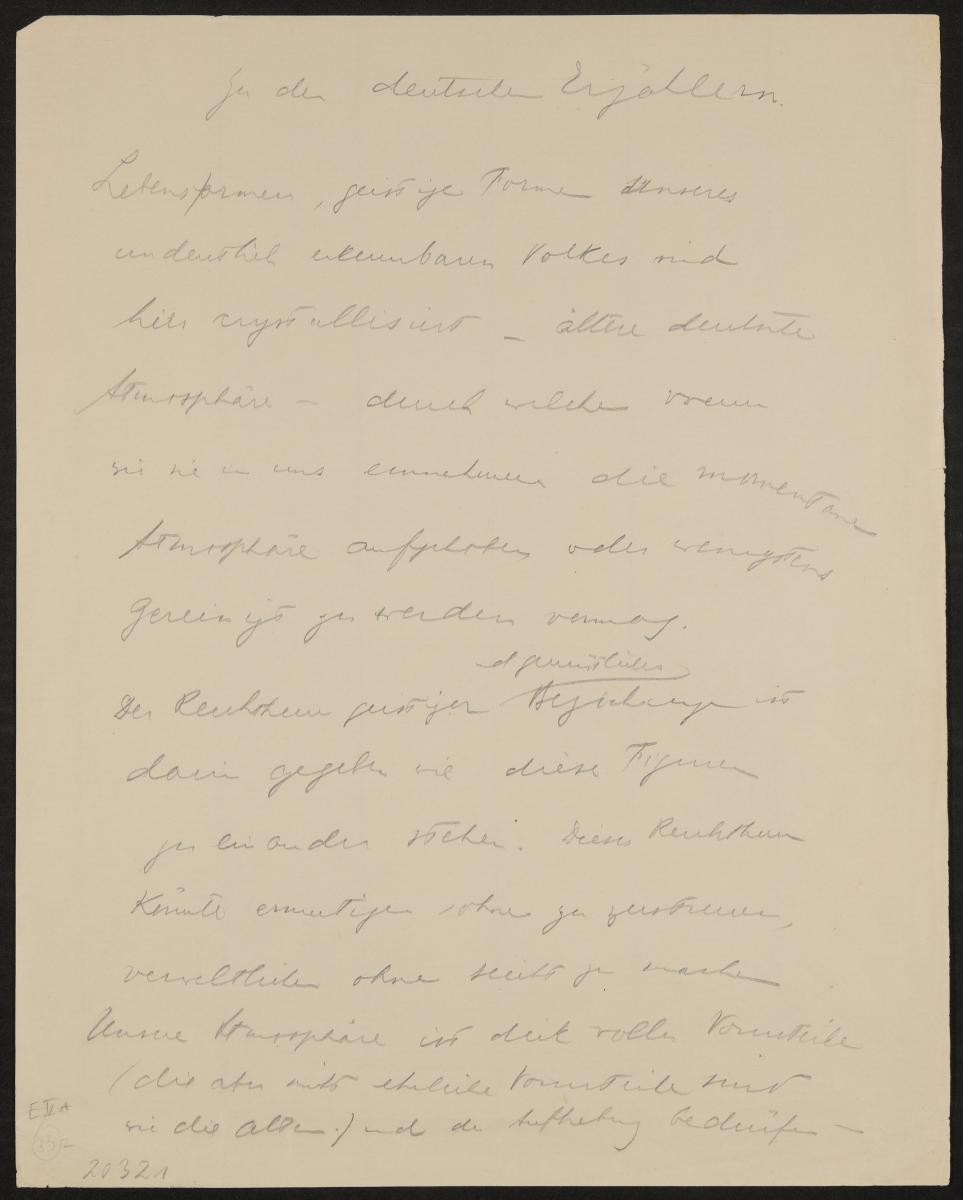 Zu den deutschen Erzählern.
Lebensformen, geistige Formen unseres
undeutlich erkennbaren Volkes sind
hier crystallisiert – ältere deutsche
Atmosphäre – durch welche wenn
wir sie in uns einnehmen die momentane
Atmosphäre aufgehoben oder wenigstens
gereinigt zu werden vermag.
und gemüthlicher
Der Reichthum geistiger Beziehungen ist
darin gegeben wie diese Figuren
zu einander stehen. Dieser Reichthum
könnte ermutigen ohne zu zerstreuen,
verweltlichen ohne seicht zu machen
Unsere Atmosphäre ist dick voller Vorurteile
(die aber nicht ehrliche Vorurteile sind
wie die alten.) und der Aufhebung bedürfen –
E IV A
33
20321